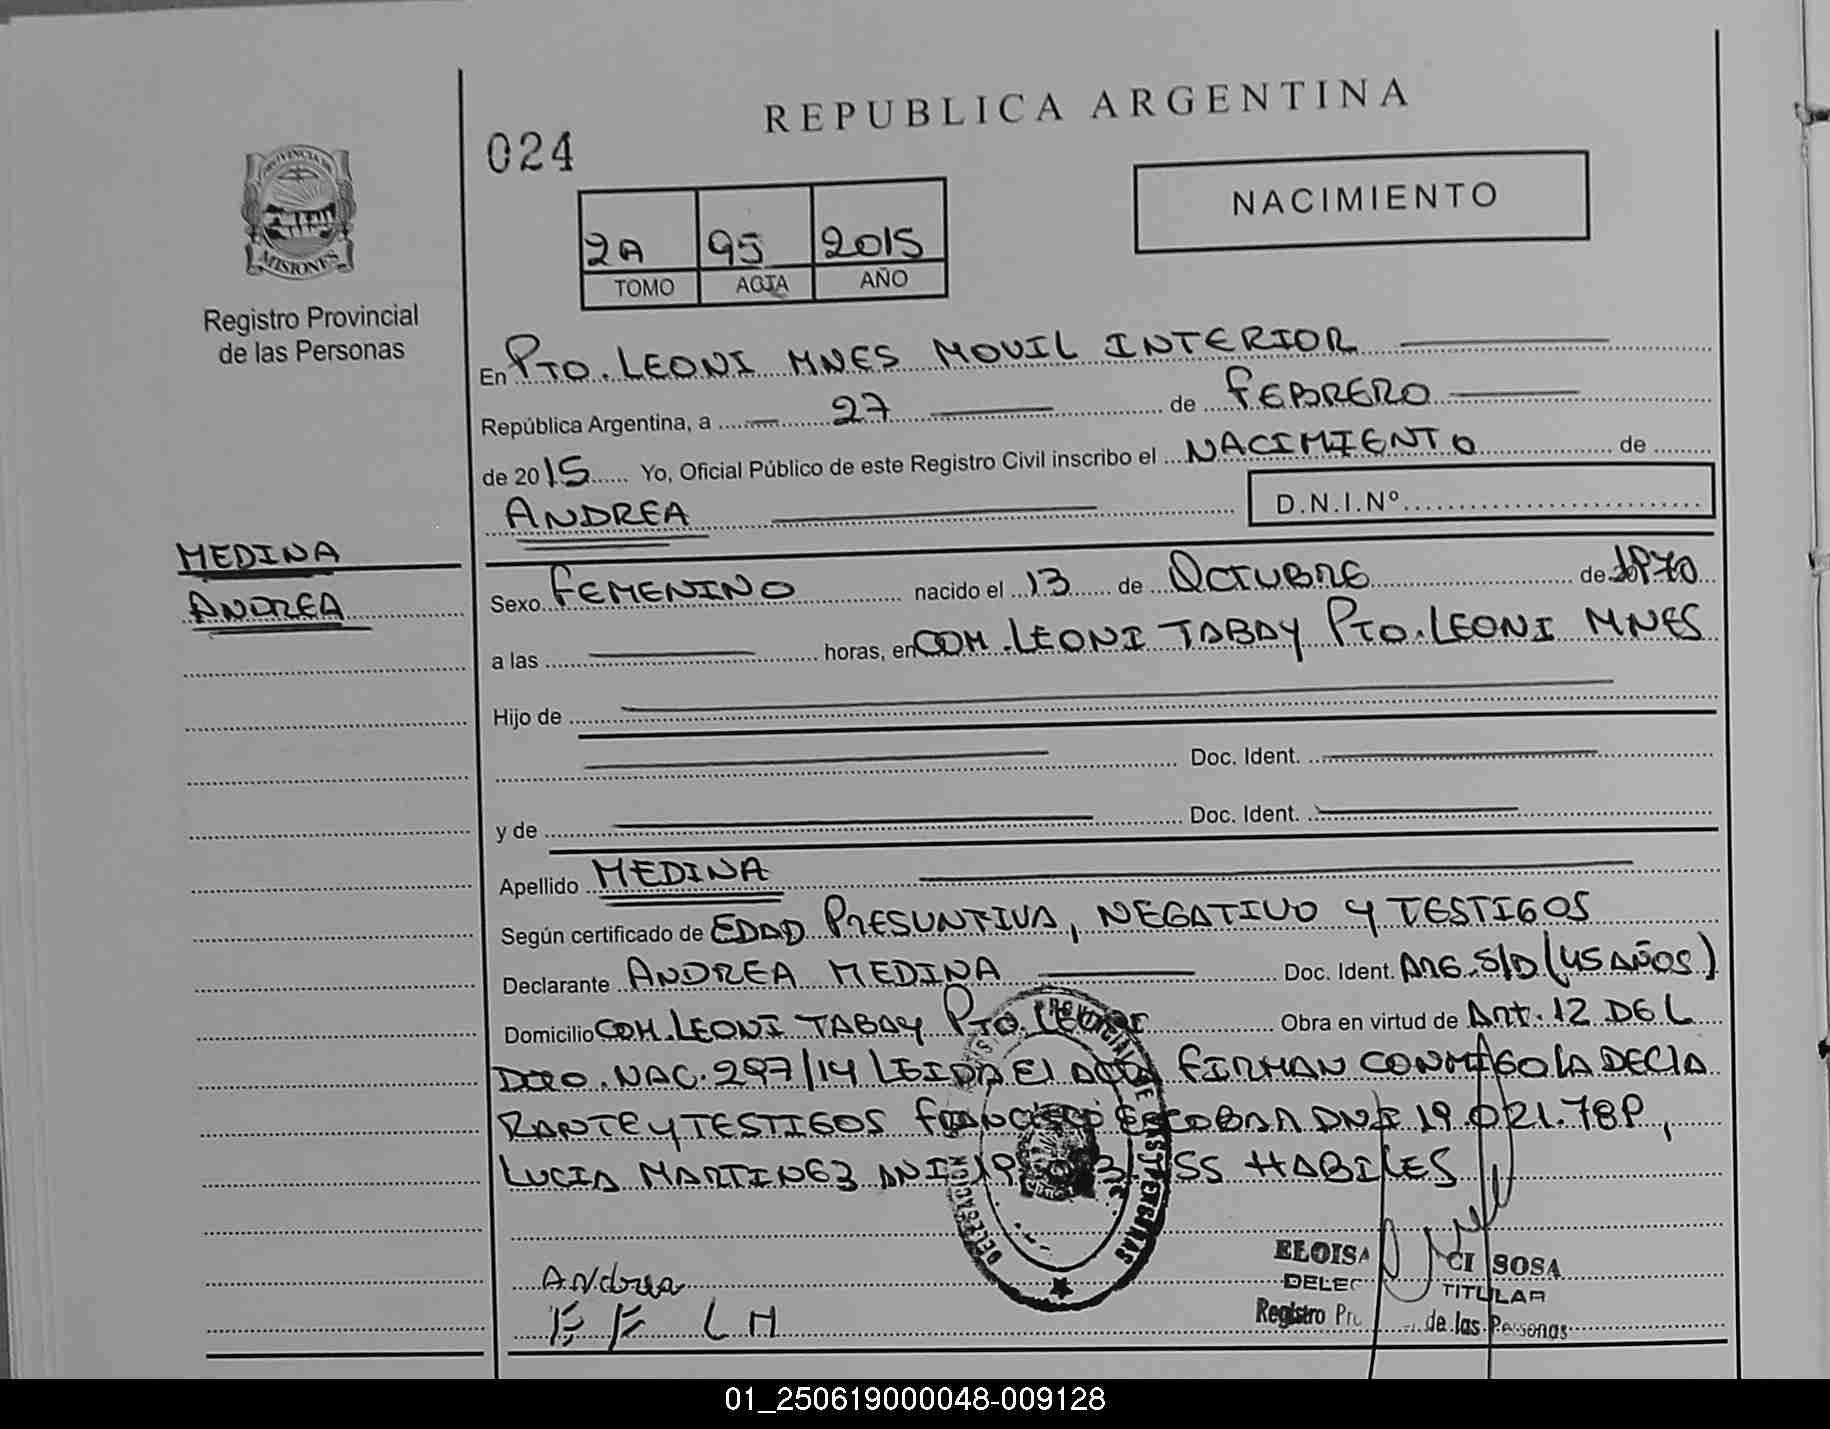 REPUBLICA ARGENTINA
024
NACIMIENTO
PROVINCIA DE
MISIONES
Registro Provincial
de las Personas
2A 95 2015
TOMO ACTA AÑO
En PTO. LEONI MNES MOVIL INTERIOR
República Argentina, a 27 de FEBRERO
de 2015 Yo, Oficial Público de este Registro Civil inscribo el NACIMIENTO de
ANDREA D.N.I.Nº
MEDINA
ANDREA
Sexo FEMENINO nacido el 13 de OCTUBRE de 1970
a las horas, en COM. LEONI TABAY PTO. LEONI MNES
Hijo de
Doc. Ident.
y de Doc. Ident.
Apellido MEDINA
Según certificado de EDAD PRESUNTIVA, NEGATIVO Y TESTIGOS
Declarante ANDREA MEDINA Doc. Ident. ARG. S/D (45 AÑOS)
Domicilio COM. LEONI TABAY PTO. LEONI Obra en virtud de ART. 12 DEL
DCTO. NAC. 297/14 LEIDA EL ACTA FIRMAN CONMIGO LA DECLA
RANTE Y TESTIGOS FRANCISCO ESCOBAR DNI 19.021.789,
LUCIA MARTINEZ DNI HABILES
Andrea
ELOISA SOSA
TITULAR
Registro de las Personas
LM
01_250619000048-009128